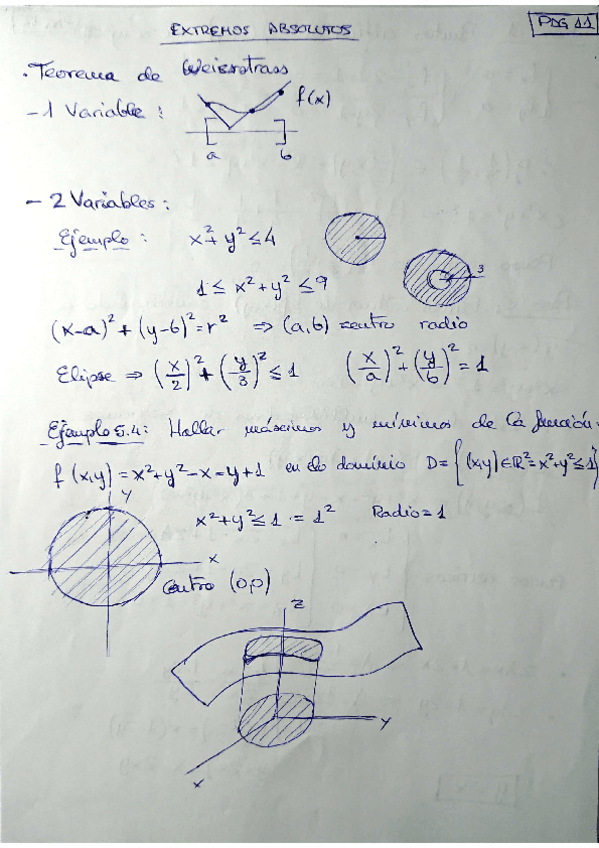 EXTREMOS ABSOLUTOS
PAG 11
· Teorema de Weierstrass
- 1 Variable :
f(x)
a b
- 2 Variables :
Ejemplo : x² + y² ≤ 4
3
1 ≤ x² + y² ≤ 9
(x-a)² + (y-b)² = r² ⇒ (a,b) centro radio
Elipse ⇒ (x/2)² + (y/3)² ≤ 1 (x/a)² + (y/b)² = 1
Ejemplo 5.4: Hallar máximos y mínimos de la función.
f (x,y) = x²+y²-x-y+1 en el dominio D= {(x,y) ∈ ℝ² = x²+y² ≤ 1}
y
x²+y² ≤ 1 = 1² Radio = 1
x
Centro (0,0)
z
y
x